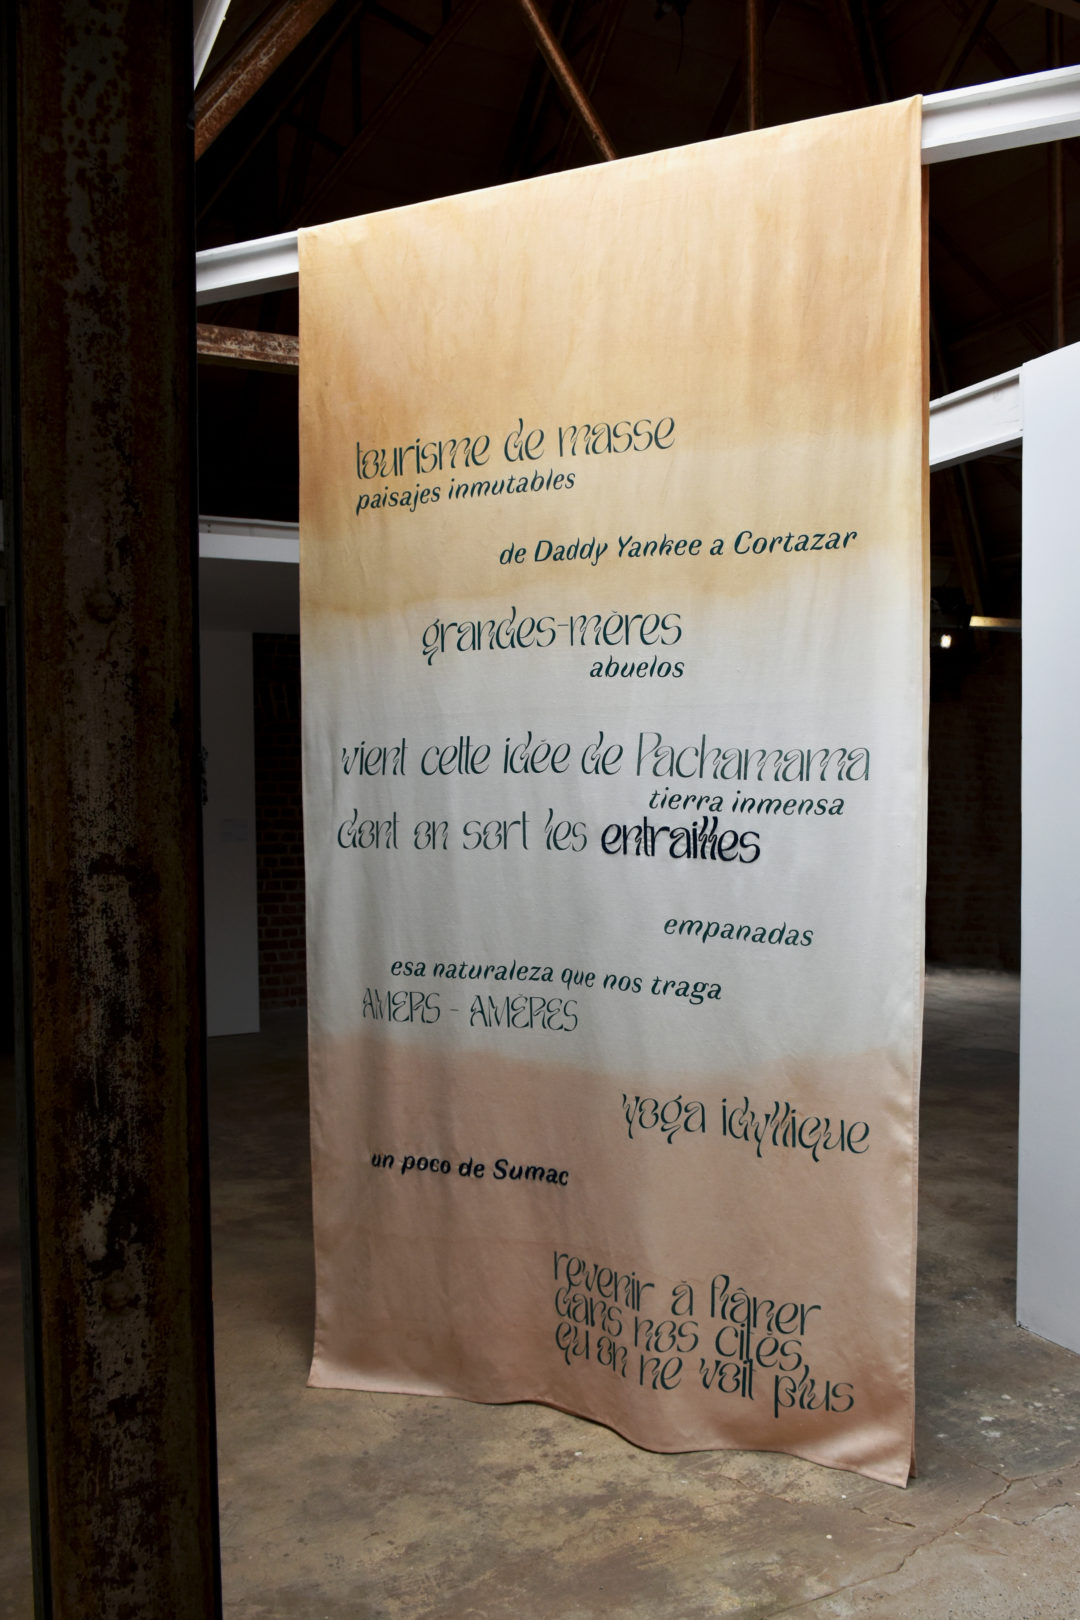 tourisme de masse
paisajes inmutables
de Daddy Yankee a Cortazar
grandes-mères
abuelos
vient cette idée de Pachamama
tierra inmensa
dont on sort les entrailles
empanadas
esa naturaleza que nos traga
AMERS - AMÈRES
yoga idyllique
un poco de Sumac
revenir à flâner
dans nos cités,
qu'on ne voit plus